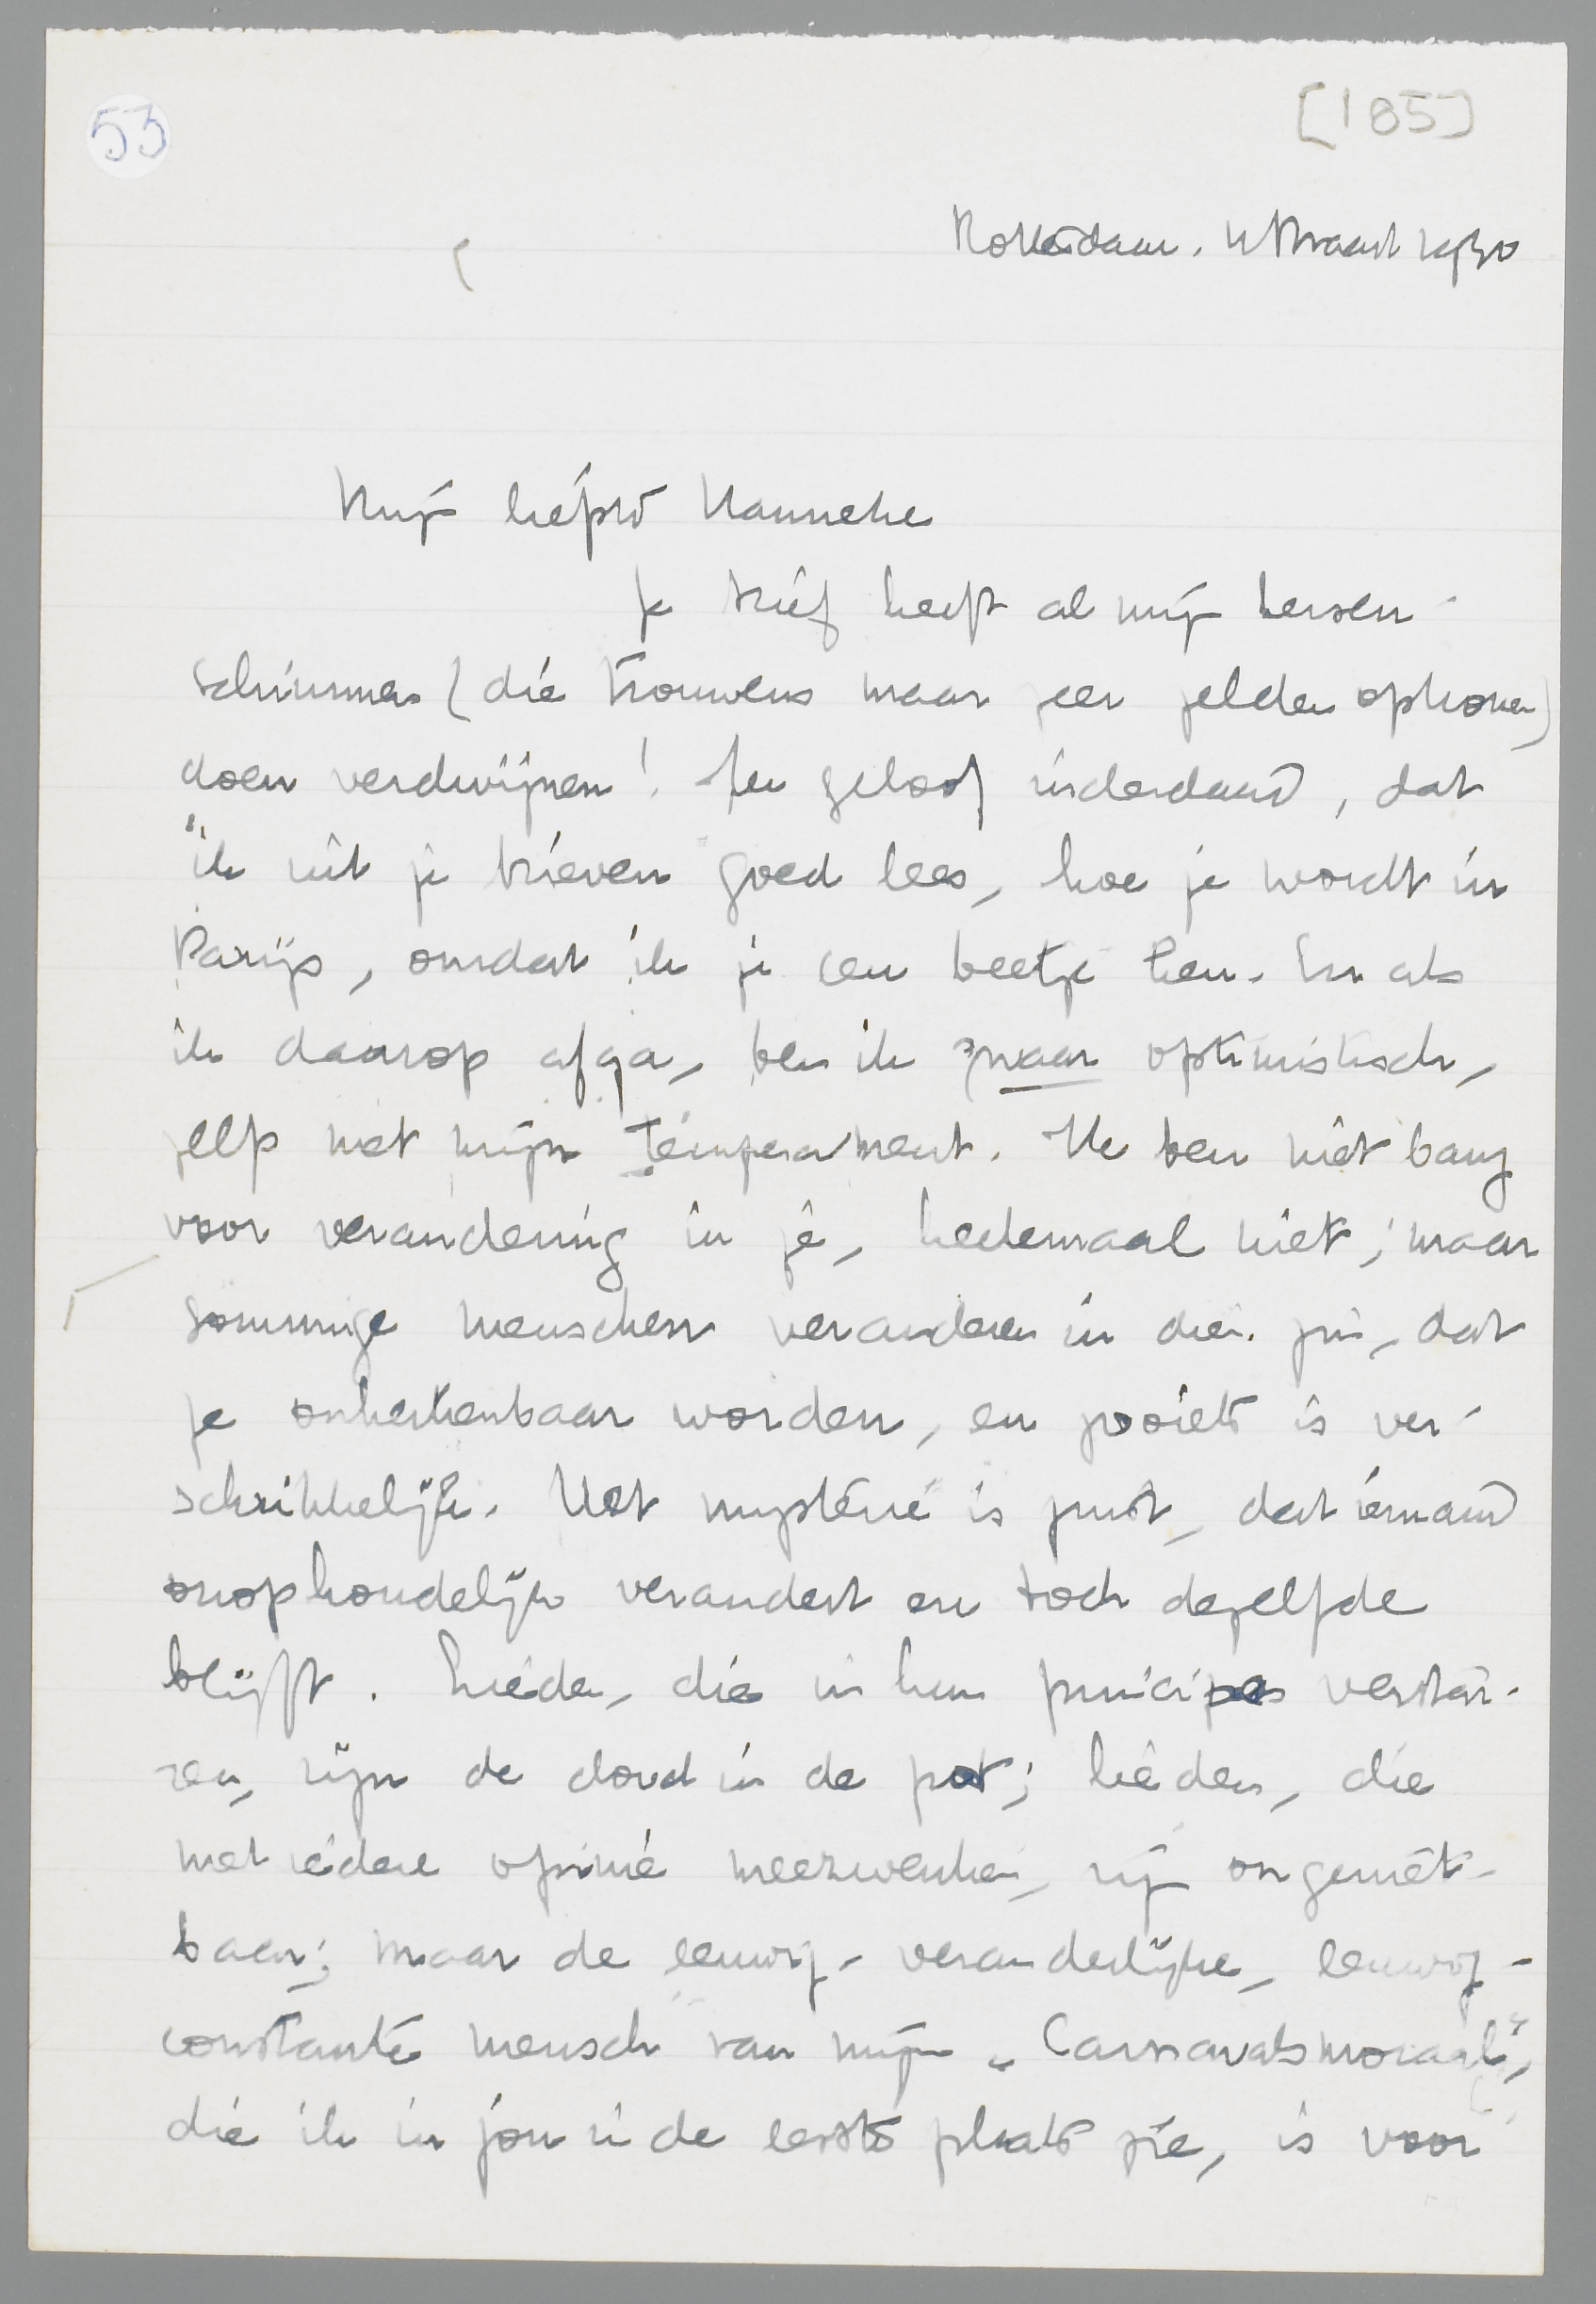 53
[185]
Rotterdam. 4 Maart 1930
Mijn liefste Hanneke
Je brief heeft al mijn hersen-
schimmen (die trouwens maar zeer zelden opkomen)
doen verdwijnen! Ik geloof inderdaad, dat
ik uit je brieven goed lees, hoe je wordt in
Parijs, omdat ik je een beetje ken. En als
ik daarop afga, ben ik zwaar optimistisch,
zelfs met mijn temperament. Ik ben niet bang
voor verandering in je, heelemaal niet; maar
sommige menschen veranderen in dien zin, dat
ze onherkenbaar worden, en zooiets is ver-
schrikkelijk. Het mysterie is juist, dat iemand
onophoudelijk verandert en toch dezelfde
blijft. Lieden, die in hun principes verstar-
ren, zijn de dood in de pot; lieden, die
met iedere opinie meezwenken, zijn ongeniet-
baar; maar de eeuwig-veranderlijke, eeuwig-
constante mensch van mijn "Carnavalsmoraal",
die ik in jou in de eerste plaats zie, is voor